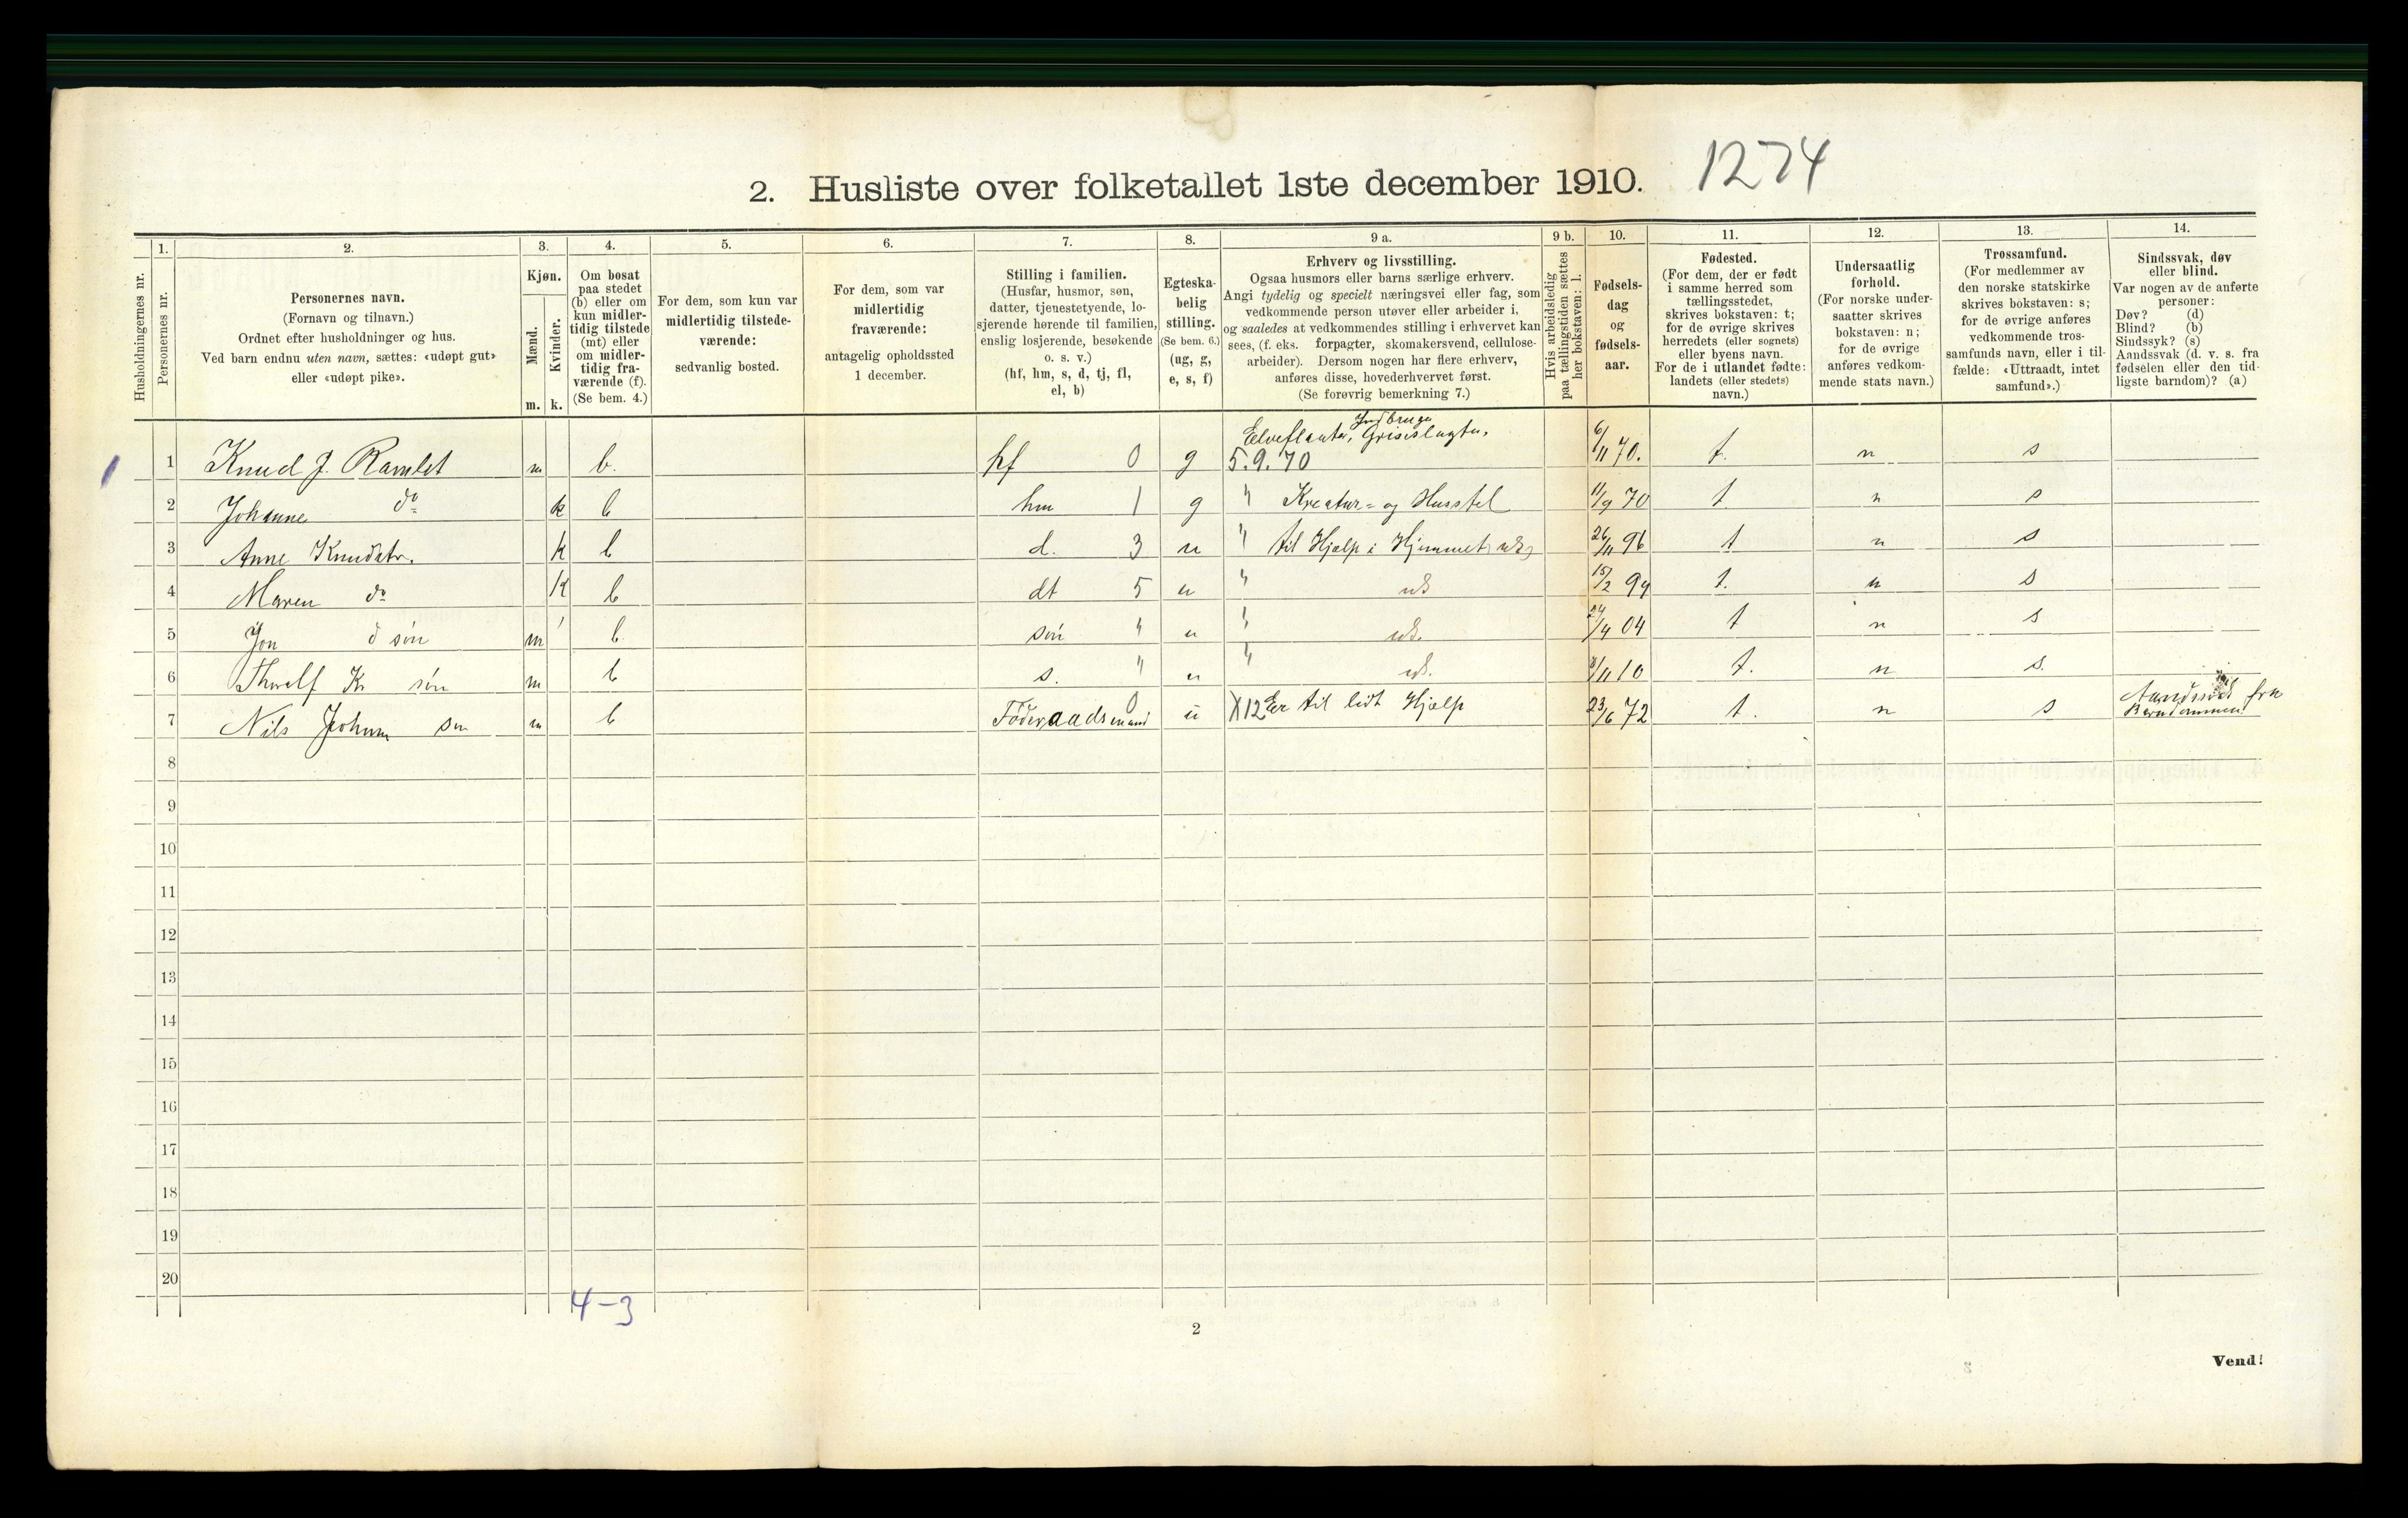 2. Husliste over folketallet 1ste december 1910. 1274
Husholdningernes nr.
1.
Personernes nr.
2.
Personernes navn.
(Fornavn og tilnavn.)
Ordnet efter husholdninger og hus.
Ved barn endnu uten navn, sættes: «udøpt gut»
eller «udøpt pike».
3.
Kjøn.
Mænd.
Kvinder.
m. k.
4.
Om bosat
paa stedet
(b) eller om
kun midler-
tidig tilstede
(mt) eller
om midler-
tidig fra-
værende (f).
(Se bem. 4.)
5.
For dem, som kun var
midlertidig tilstede-
værende:
sedvanlig bosted.
6.
For dem, som var
midlertidig
fraværende:
antagelig opholdssted
1 december.
7.
Stilling i familien.
(Husfar, husmor, søn,
datter, tjenestetyende, lo-
sjerende hørende til familien,
enslig losjerende, besøkende
o. s. v.)
(hf, hm, s, d, tj, fl,
el, b)
8.
Egteska-
belig
stilling.
(Se bem. 6.)
(ug, g,
e, s, f)
9 a.
Erhverv og livsstilling.
Ogsaa husmors eller barns særlige erhverv.
Angi tydelig og specielt næringsvei eller fag, som
vedkommende person utøver eller arbeider i,
og saaledes at vedkommendes stilling i erhvervet kan
sees, (f. eks. forpagter, skomakersvend, cellulose-
arbeider). Dersom nogen har flere erhverv,
anføres disse, hovederhvervet først.
(Se forøvrig bemerkning 7.)
9 b.
Hvis arbeidsledig
paa tællingstiden sættes
her bokstaven: l.
10.
Fødsels-
dag
og
fødsels-
aar.
11.
Fødested.
(For dem, der er født
i samme herred som
tællingsstedet,
skrives bokstaven: t;
for de øvrige skrives
herredets (eller sognets)
eller byens navn.
For de i utlandet fødte:
landets (eller stedets)
navn.)
12.
Undersaatlig
forhold.
(For norske under-
saatter skrives
bokstaven: n;
for de øvrige
anføres vedkom-
mende stats navn.)
13.
Trossamfund.
(For medlemmer av
den norske statskirke
skrives bokstaven: s;
for de øvrige anføres
vedkommende tros-
samfunds navn, eller i til-
fælde: «Uttraadt, intet
samfund».)
14.
Sindssvak, døv
eller blind.
Var nogen av de anførte
personer:
Døv? (d)
Blind? (b)
Sindssyk? (s)
Aandssvak (d. v. s. fra
fødselen eller den tid-
ligste barndom)? (a)
1 Knud J. Ramlet m b. hf 0 g 5.9.70 6/11 70. t. n s
2 Johanne do k b hm 1 g " Kreatur- og Husstel 11/9 70 t. n s
3 Anne Knudstr. k b d. 3 u " til Hjælp i Hjemmet 26/11 96 t n s
4 Maren do k b dt 5 u " 15/2 99 t. n s
5 Jon d søn m b. søn " u " 24/4 04 t n s
6 Thoralf K søn m b s. " u " /11 10 t. n s.
7 Nils Johann søn m b Föderaadsmand 0 u X12 Er til lidt Hjælp 23/6 72 t. n s Aandssvak fra Barndommen
8
9
10
11
12
13
14
15
16
17
18
19
20
4-3
2
Vend!